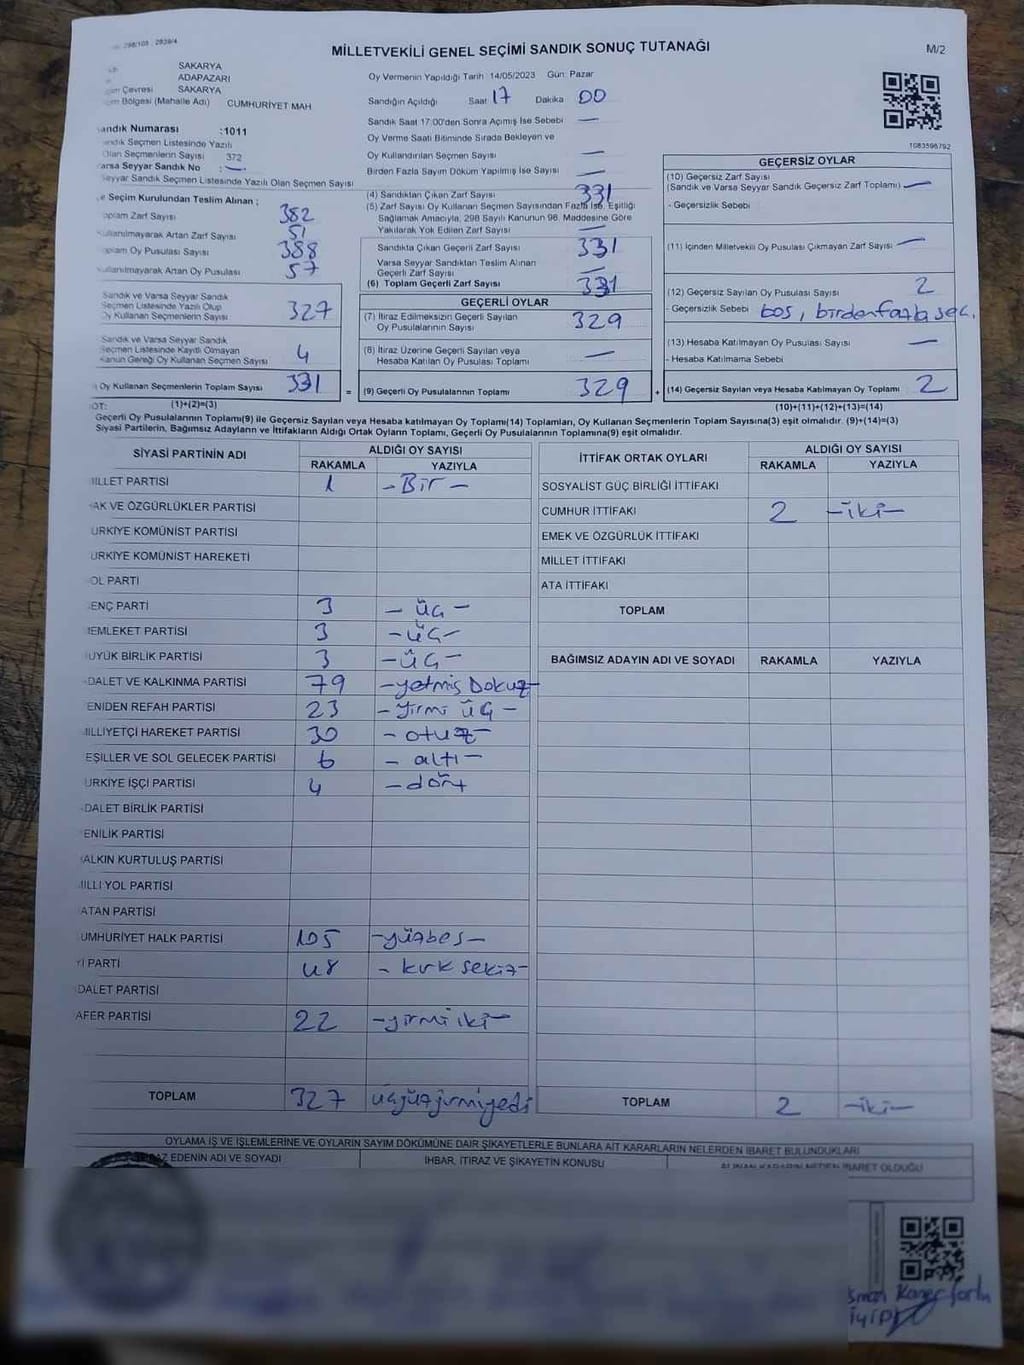 298/105 : 2839/4
MİLLETVEKİLİ GENEL SEÇİMİ SANDIK SONUÇ TUTANAĞI
M/2
SAKARYA
ADAPAZARI
Çevresi SAKARYA
Bölgesi (Mahalle Adı) CUMHURİYET MAH
Oy Vermenin Yapıldığı Tarih 14/05/2023 Gün: Pazar
Sandığın Açıldığı Saat 17 Dakika 00
Sandık Saat 17:00'den Sonra Açımış İse Sebebi —
Oy Verme Saati Bitiminde Sırada Bekleyen ve
Oy Kullandırılan Seçmen Sayısı —
Birden Fazla Sayım Döküm Yapılmış İse Sayısı —
1083596792
andık Numarası :1011
andık Seçmen Listesinde Yazılı
Olan Seçmenlerin Sayısı 372
arsa Seyyar Sandık No : —
eyyar Sandık Seçmen Listesinde Yazılı Olan Seçmen Sayısı
e Seçim Kurulundan Teslim Alınan ;
oplam Zarf Sayısı 382
ullanılmayarak Artan Zarf Sayısı 51
oplam Oy Pusulası 388
ullanılmayarak Artan Oy Pusulası 57
Sandık ve Varsa Seyyar Sandık
Seçmen Listesinde Yazılı Olup
Oy Kullanan Seçmenlerin Sayısı 327
Sandık ve Varsa Seyyar Sandık
Seçmen Listesinde Kayıtlı Olmayan
Kanun Gereği Oy Kullanan Seçmen Sayısı 4
Oy Kullanan Seçmenlerin Toplam Sayısı 331
(1)+(2)=(3)
(4) Sandıktan Çıkan Zarf Sayısı 331
(5) Zarf Sayısı Oy Kullanan Seçmen Sayısından Fazla İse, Eşitliği
Sağlamak Amacıyla, 298 Sayılı Kanunun 98. Maddesine Göre
Yakılarak Yok Edilen Zarf Sayısı —
Sandıkta Çıkan Geçerli Zarf Sayısı 331
Varsa Seyyar Sandıktan Teslim Alınan
Geçerli Zarf Sayısı —
(6) Toplam Geçerli Zarf Sayısı 331
GEÇERLİ OYLAR
(7) İtiraz Edilmeksizin Geçerli Sayılan
Oy Pusulalarının Sayısı 329
(8) İtiraz Üzerine Geçerli Sayılan veya
Hesaba Katılan Oy Pusulası Toplamı —
= (9) Geçerli Oy Pusulalarının Toplamı 329 +
GEÇERSİZ OYLAR
(10) Geçersiz Zarf Sayısı
(Sandık ve Varsa Seyyar Sandık Geçersiz Zarf Toplamı) —
- Geçersizlik Sebebi
(11) İçinden Milletvekili Oy Pusulası Çıkmayan Zarf Sayısı —
(12) Geçersiz Sayılan Oy Pusulası Sayısı 2
- Geçersizlik Sebebi boş, birden fazla seç.
(13) Hesaba Katılmayan Oy Pusulası Sayısı —
- Hesaba Katılmama Sebebi
(14) Geçersiz Sayılan veya Hesaba Katılmayan Oy Toplamı 2
(10)+(11)+(12)+(13)=(14)
OT:
Geçerli Oy Pusulalarının Toplamı(9) ile Geçersiz Sayılan veya Hesaba katılmayan Oy Toplamı(14) Toplamları, Oy Kullanan Seçmenlerin Toplam Sayısına(3) eşit olmalıdır. (9)+(14)=(3)
Siyasi Partilerin, Bağımsız Adayların ve İttifakların Aldığı Ortak Oyların Toplamı, Geçerli Oy Pusulalarının Toplamına(9) eşit olmalıdır.
SİYASİ PARTİNİN ADI ALDIĞI OY SAYISI
RAKAMLA YAZIYLA
İLLET PARTİSİ 1 -Bir-
AK VE ÖZGÜRLÜKLER PARTİSİ
ÜRKİYE KOMÜNİST PARTİSİ
ÜRKİYE KOMÜNİST HAREKETİ
OL PARTİ
ENÇ PARTİ 3 -üç-
EMLEKET PARTİSİ 3 -üç-
ÜYÜK BİRLİK PARTİSİ 3 -üç-
DALET VE KALKINMA PARTİSİ 79 -yetmiş Dokuz-
ENİDEN REFAH PARTİSİ 23 -yirmi üç-
İLLİYETÇİ HAREKET PARTİSİ 30 -otuz-
EŞİLLER VE SOL GELECEK PARTİSİ 6 -altı-
ÜRKİYE İŞÇİ PARTİSİ 4 -dört
DALET BİRLİK PARTİSİ
ENİLİK PARTİSİ
ALKIN KURTULUŞ PARTİSİ
İLLİ YOL PARTİSİ
ATAN PARTİSİ
UMHURİYET HALK PARTİSİ 105 -yüzbeş-
Yİ PARTİ 48 -kırk sekiz-
DALET PARTİSİ
AFER PARTİSİ 22 -yirmi iki-
TOPLAM 327 üçyüzyirmiyedi
İTTİFAK ORTAK OYLARI ALDIĞI OY SAYISI
RAKAMLA YAZIYLA
SOSYALİST GÜÇ BİRLİĞİ İTTİFAKI
CUMHUR İTTİFAKI 2 -iki-
EMEK VE ÖZGÜRLÜK İTTİFAKI
MİLLET İTTİFAKI
ATA İTTİFAKI
TOPLAM
BAĞIMSIZ ADAYIN ADI VE SOYADI RAKAMLA YAZIYLA
TOPLAM 2 -iki-
OYLAMA İŞ VE İŞLEMLERİNE VE OYLARIN SAYIM DÖKÜMÜNE DAİR ŞİKAYETLERLE BUNLARA AİT KARARLARIN NELERDEN İBARET BULUNDUKLARI
AZ EDENİN ADI VE SOYADI İHBAR, İTİRAZ VE ŞİKAYETİN KONUSU ALINAN KARARIN NEDEN İBARET OLDUĞU
İYİP